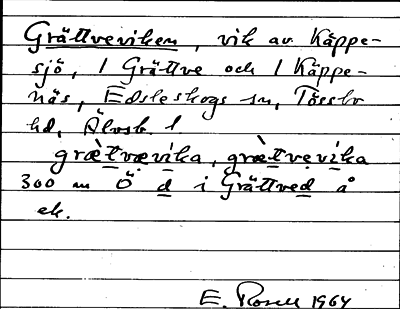 Grättveviken, vik av Käppe-
sjö, 1 Grättve och 1 Käppe-
näs, Edsleskogs sn, Tössbo
hd, Älvsb. l
grætvævika, grætvevika
300 m Ö d i Grättved å
ek.
E. Rosell 1964